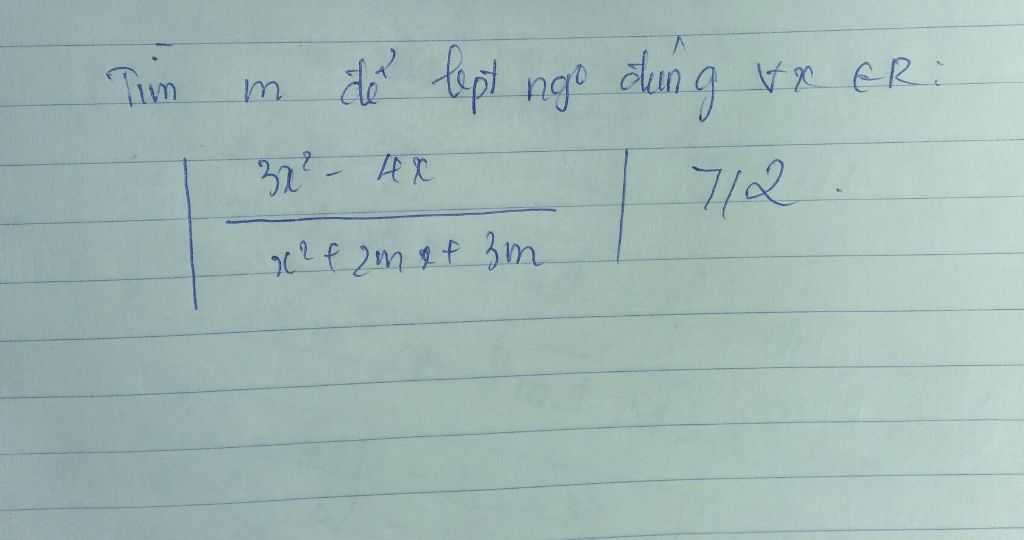 Tìm m để bpt ngo đúng ∀x ∈R:
| 3x² - 4x |
| x² + 2mx + 3m | 7/2.